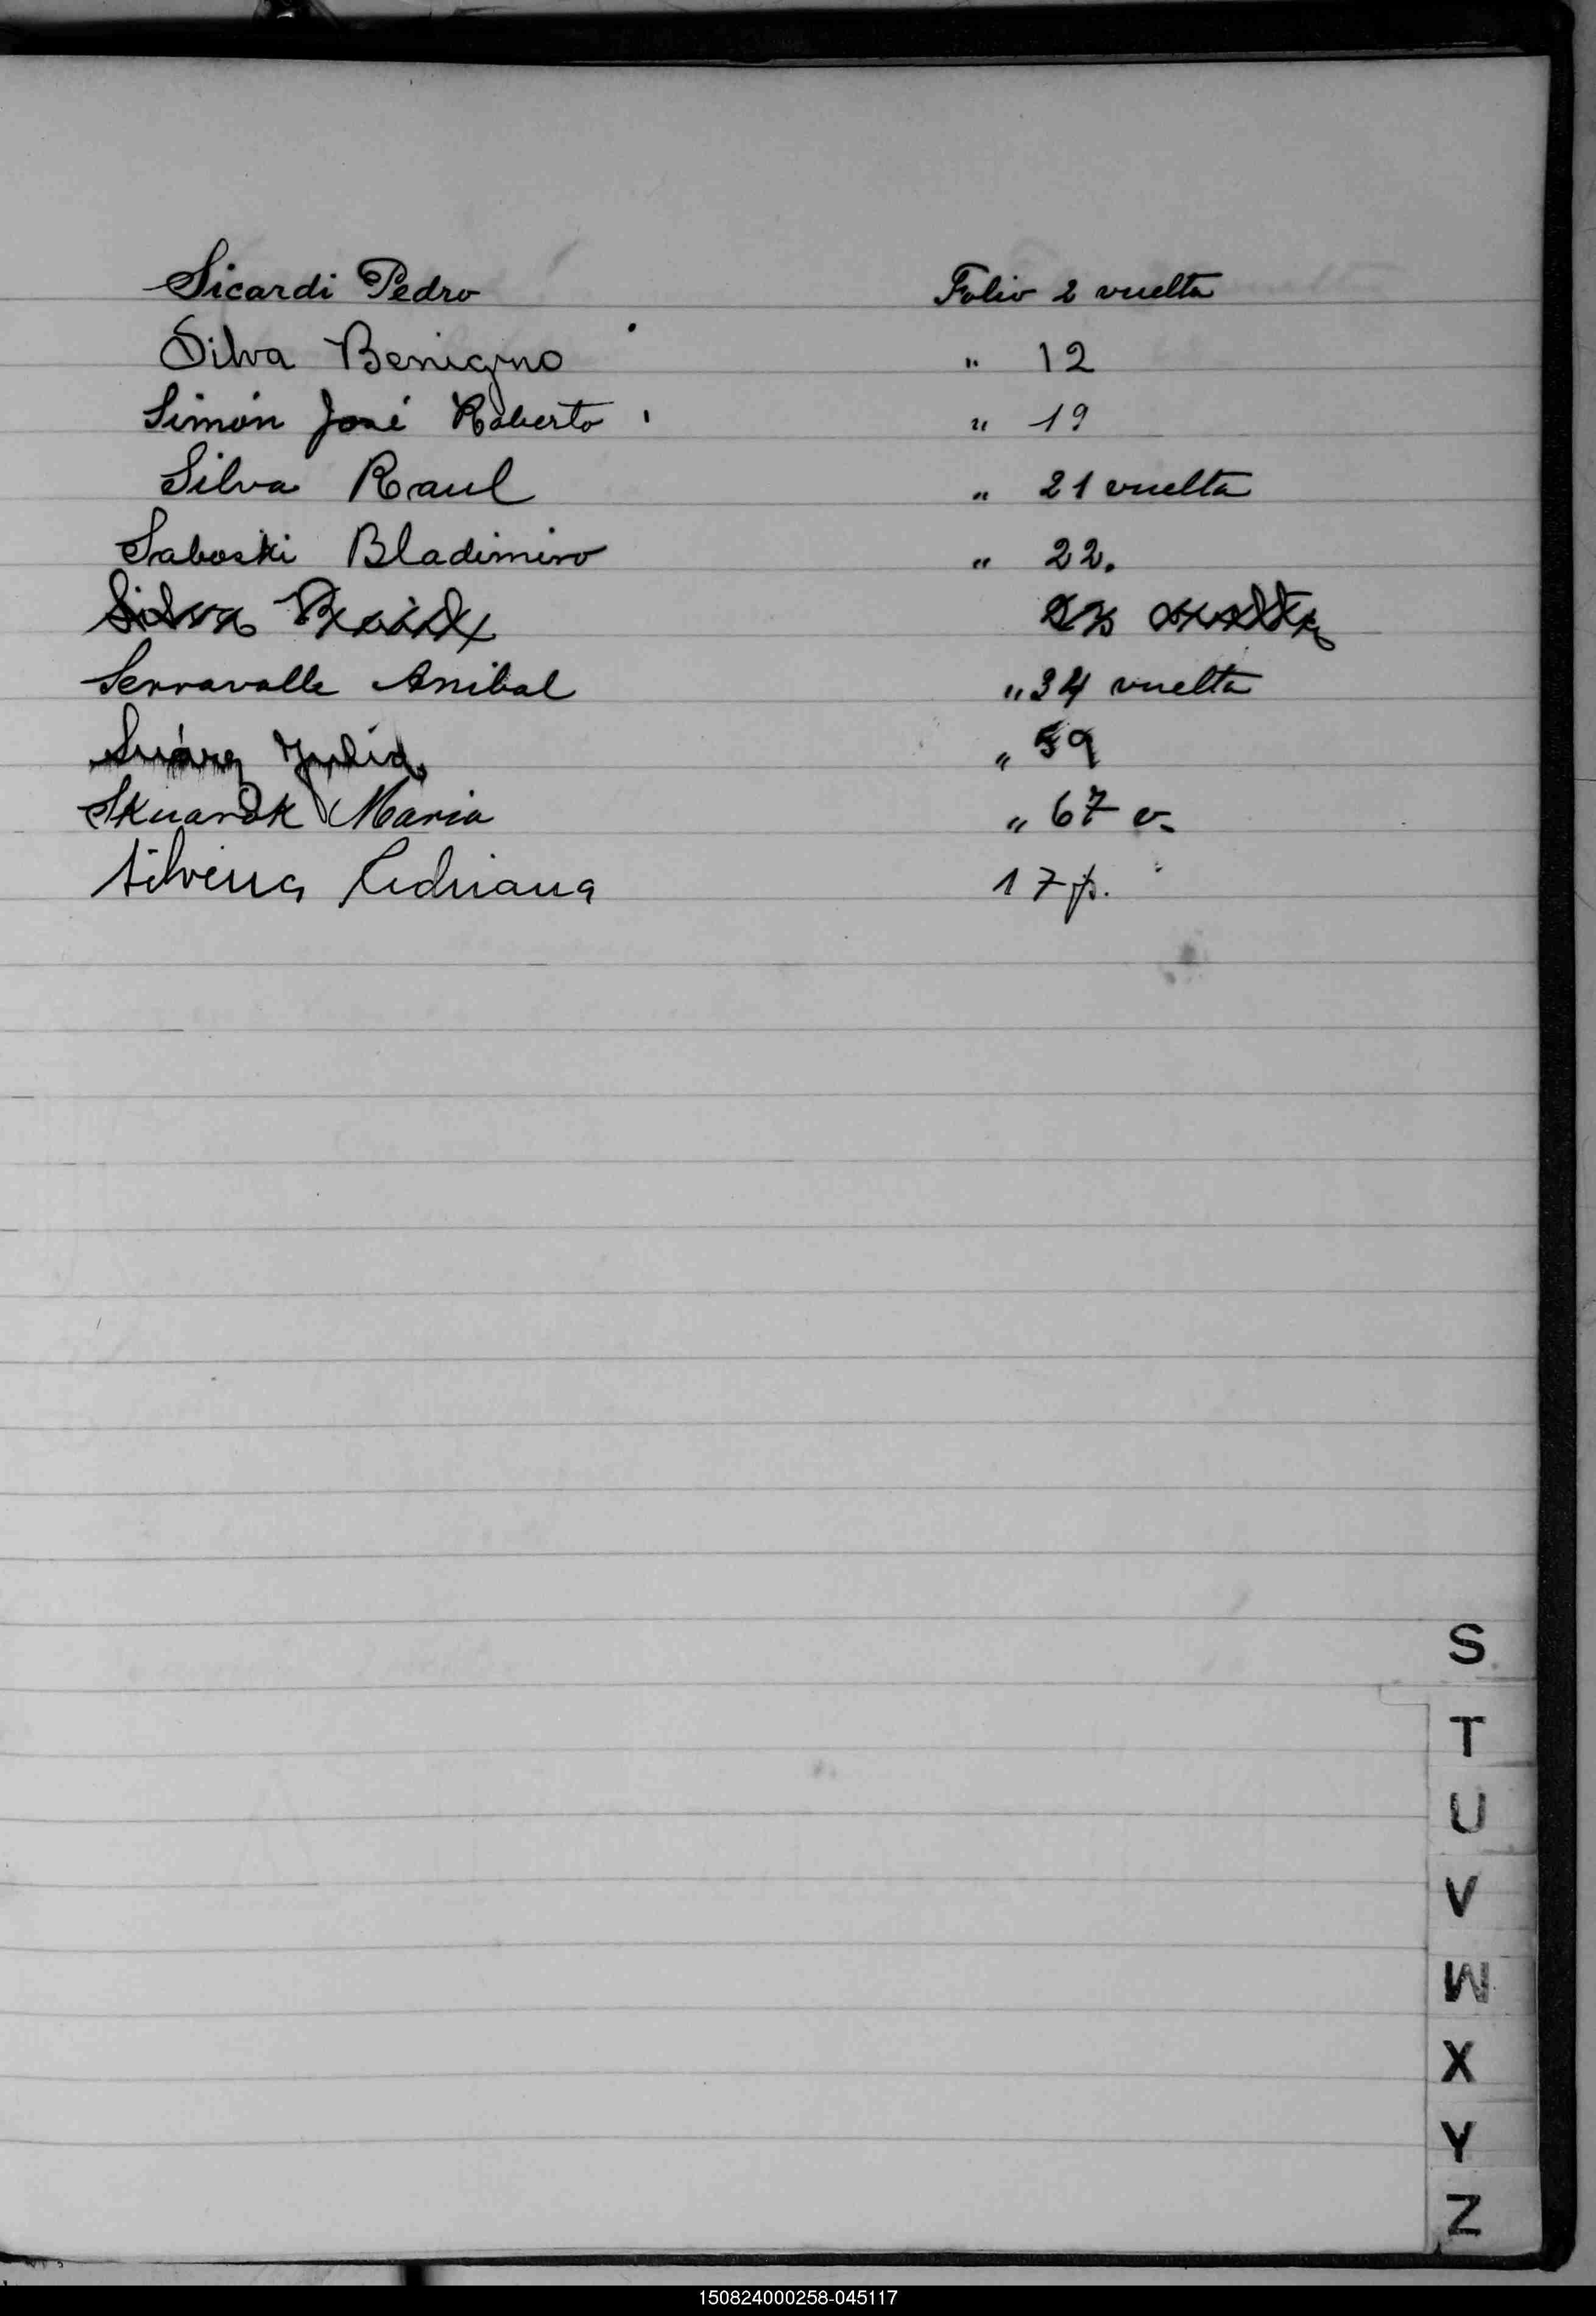 Sicardi Pedro Folio 2 vuelta
Silva Benigno " 12
Simón José Roberto " 19
Silva Raul " 21 vuelta
Saboski Bladimiro " 22.
Silva
Serravalle Anibal " 34 vuelta
Suárez Julia " 59
Skuarok Maria " 67 v.
Silveira Adriana 17 p.
S
T
U
V
W
X
Y
Z
150824000258-045117